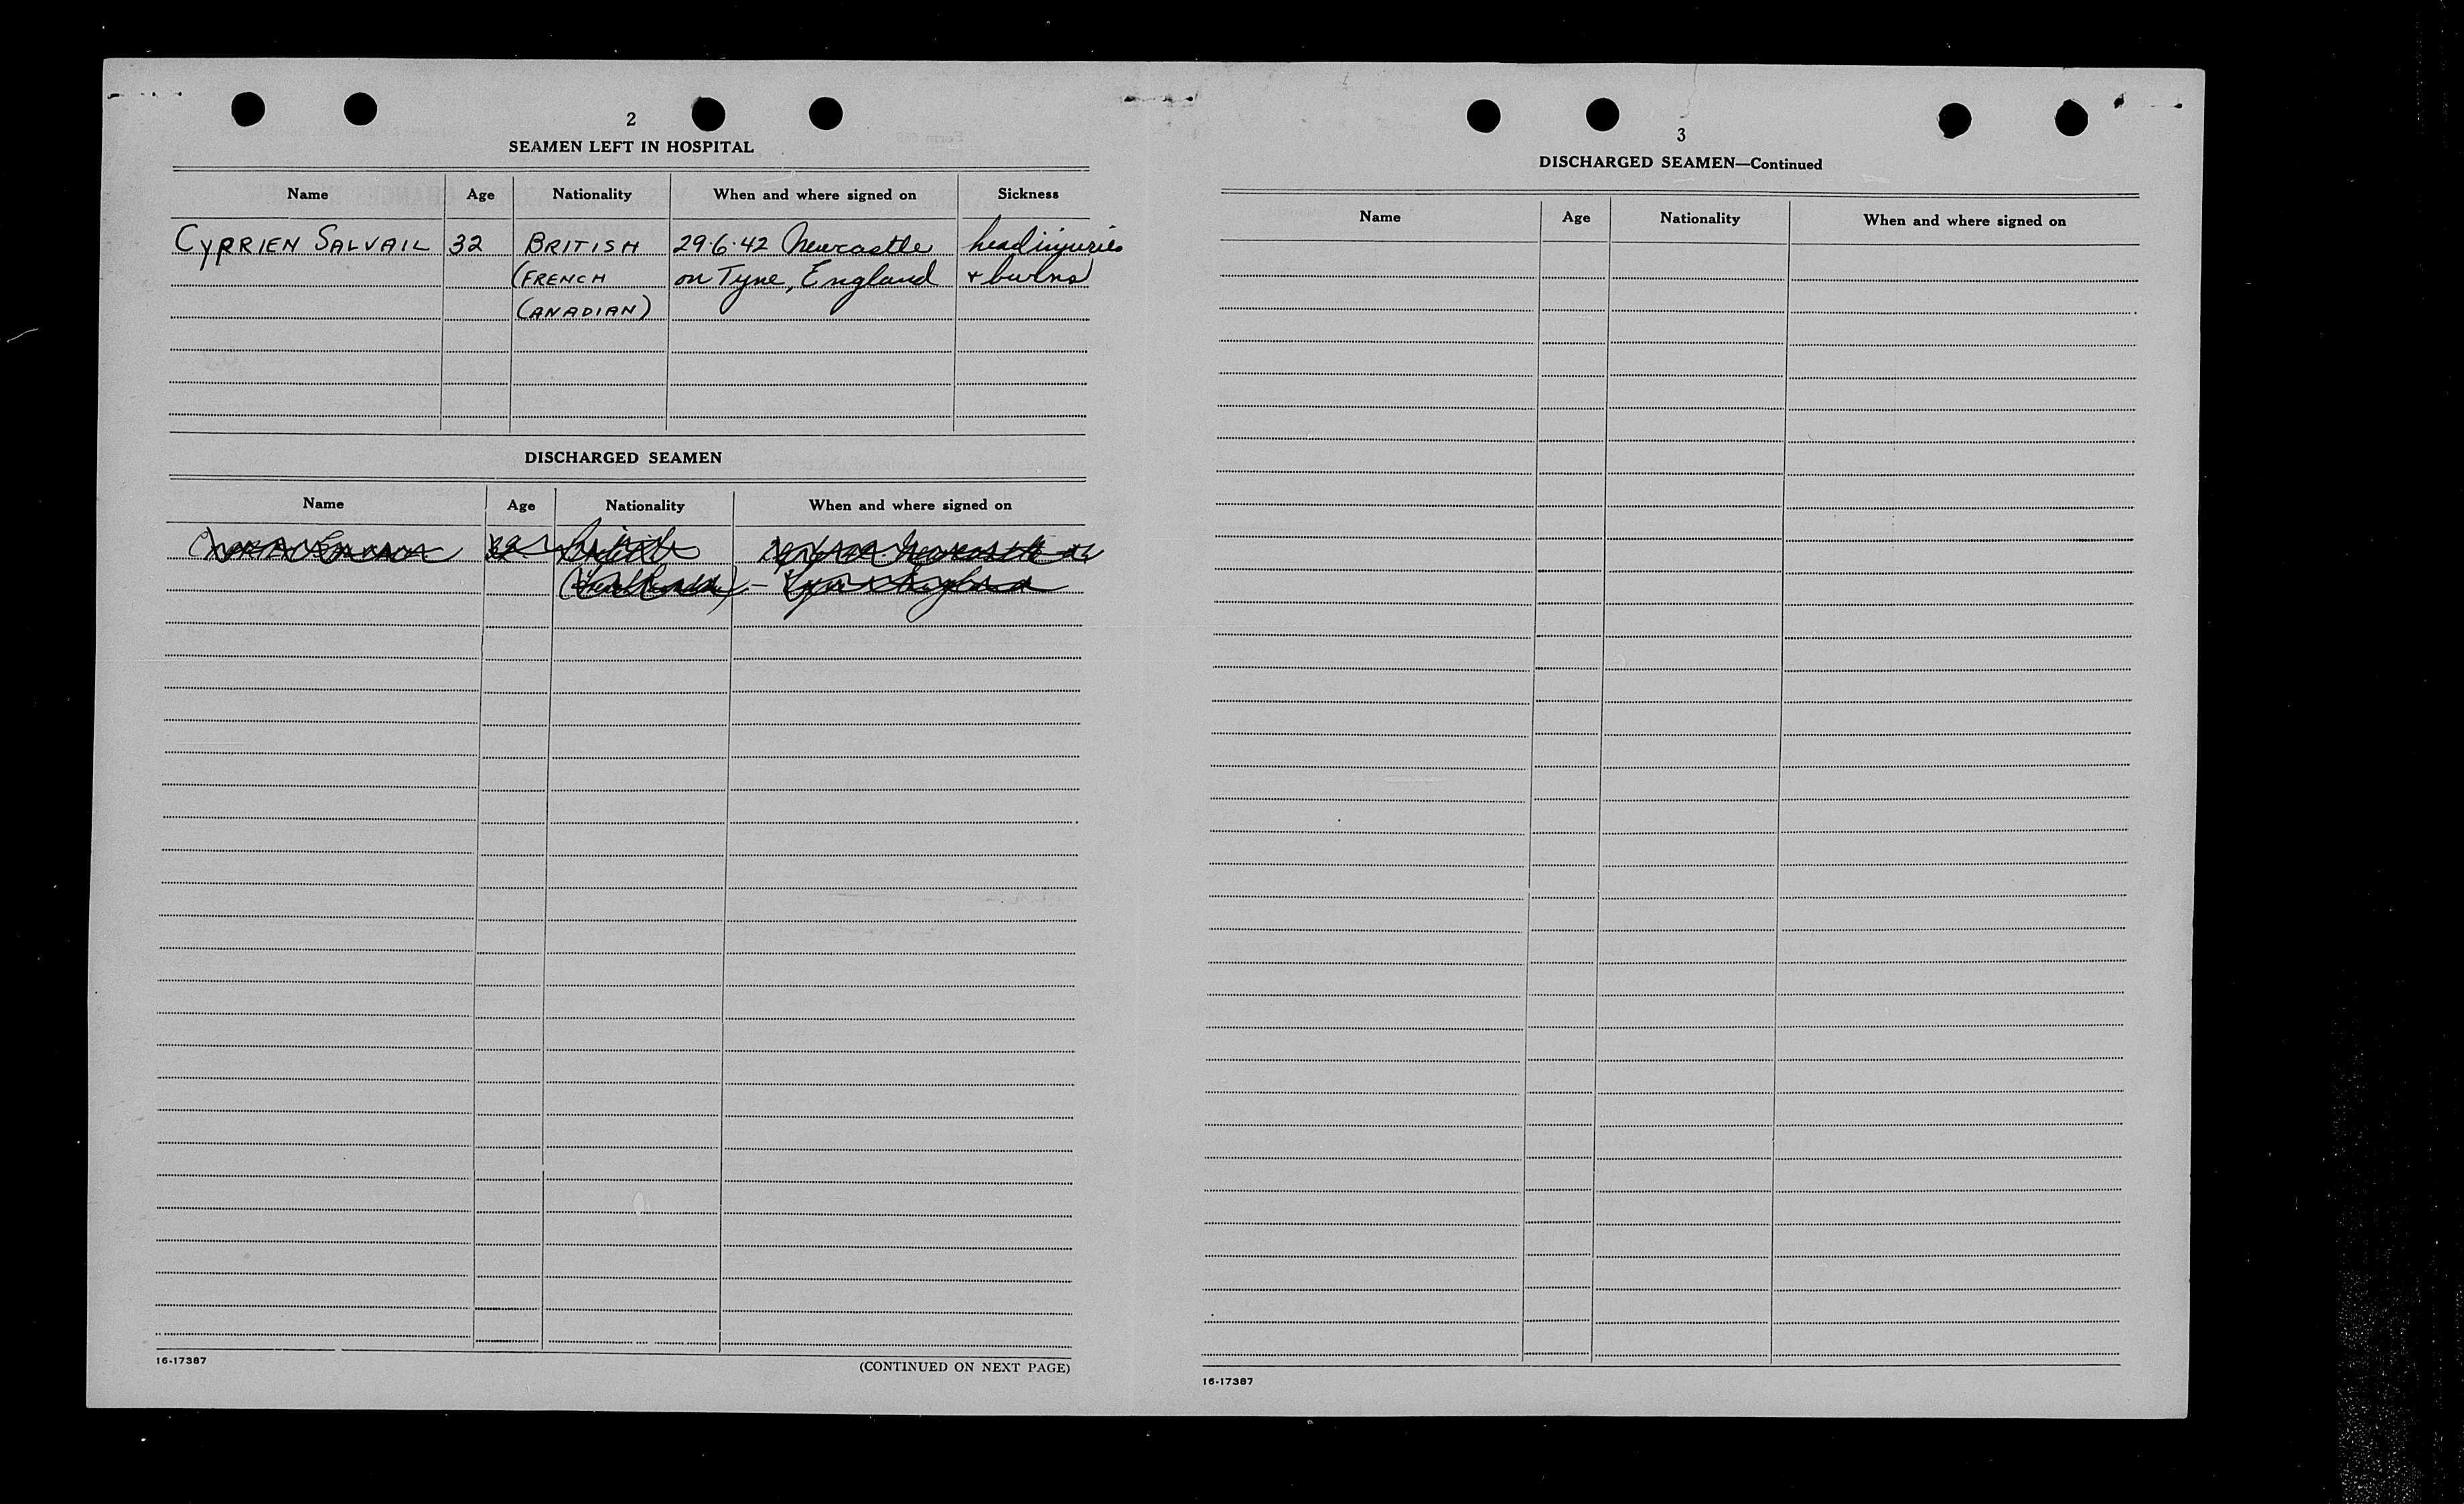 2
SEAMEN LEFT IN HOSPITAL
Name Age Nationality When and where signed on Sickness
CYPRIEN SALVAIL 32 BRITISH 29.6.42 Newcastle head injuries
(FRENCH on Tyne, England + burns
CANADIAN)
DISCHARGED SEAMEN
Name Age Nationality When and where signed on
32 British Newcastle on
Tyne England
16-17387
(CONTINUED ON NEXT PAGE)
3
DISCHARGED SEAMEN—Continued
Name Age Nationality When and where signed on
16-17387